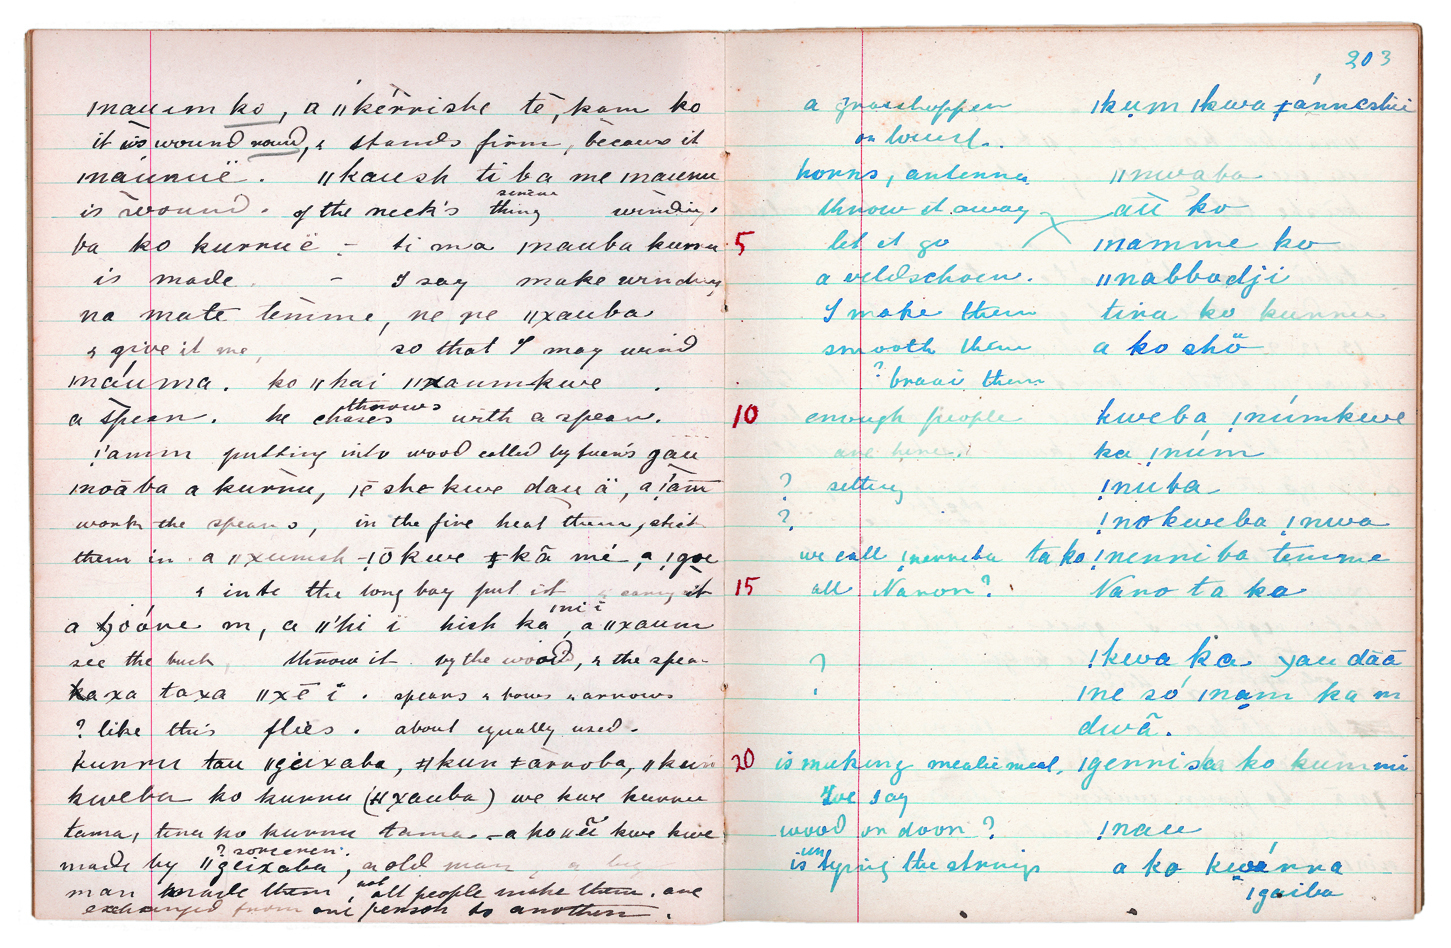 ınauım ko, a ǁkérrishe tē, kam ko
it is wound round, & stands firm, because it
ınáunuë. ǁkaush ti ba me ınaunu
is wound. of the neck's thing sinew winding.
ba ko kurruë – ti ma ınauba kurru
is made. – I say make winding
na mate temme, ne ne ǁxauba
& give it me, so that I may wind
ınáuma. ko ǁhai ǁxaumkwe.
a spear. he chases throws with a spear.
!'amm putting into wood called by tuern's gau
ınoāba a kurru, ıē she kwe dau ä, a !'am
work the spears, in the fire heat them, stick
them in. a ǁxumsh –!ō kwe ǂkā mé, a !goe
& into the long bag put it & carry it
a !óáne m, a ǁ'hi ï hish ka ıni ï, a ǁxaum
see the buck, throw it. by the wood, & the spear
kaxa taxa ǁxē ï. spears & bows & arrows
? like this flies. about equally used.
kurru tau ǁgeixaba, ǂkun ǂarroba, ǁkun
kweba ko kurru (ǂxauba) we kwe kurru
tama, tina ko kurru tama – a ko ǁēi kwe kwe
made by ǁgeixaba, ? sorcerer. a old man a big
man made them, not all people make them. are
exchanged from one person to another.
203
a grasshopper ıkum ıkwa ǂánneshi
or locust.
horns, antenna ǁnwaba
throw it away atī ko
5 let it go ınamme ko
a veldschoen. ǁnabbadji
I make them tina ko kurru
smooth them a ko shõ
? braai them
10 enough people kweba ınúmkwe
are here. ka ınúm
? setting !nuba
? !nokweba !nwa
we call !nenneba ta ko !nenni ba temme
15 all Naron? Naro ta ka
? !kwa ka xau dāā
ıne só ınam ka m
dwā.
20 is making mealie meal. ıgenni sa ko kummi
We say
wood or door? ınau
is un tying the strings a ko kwárra
ıgaiba